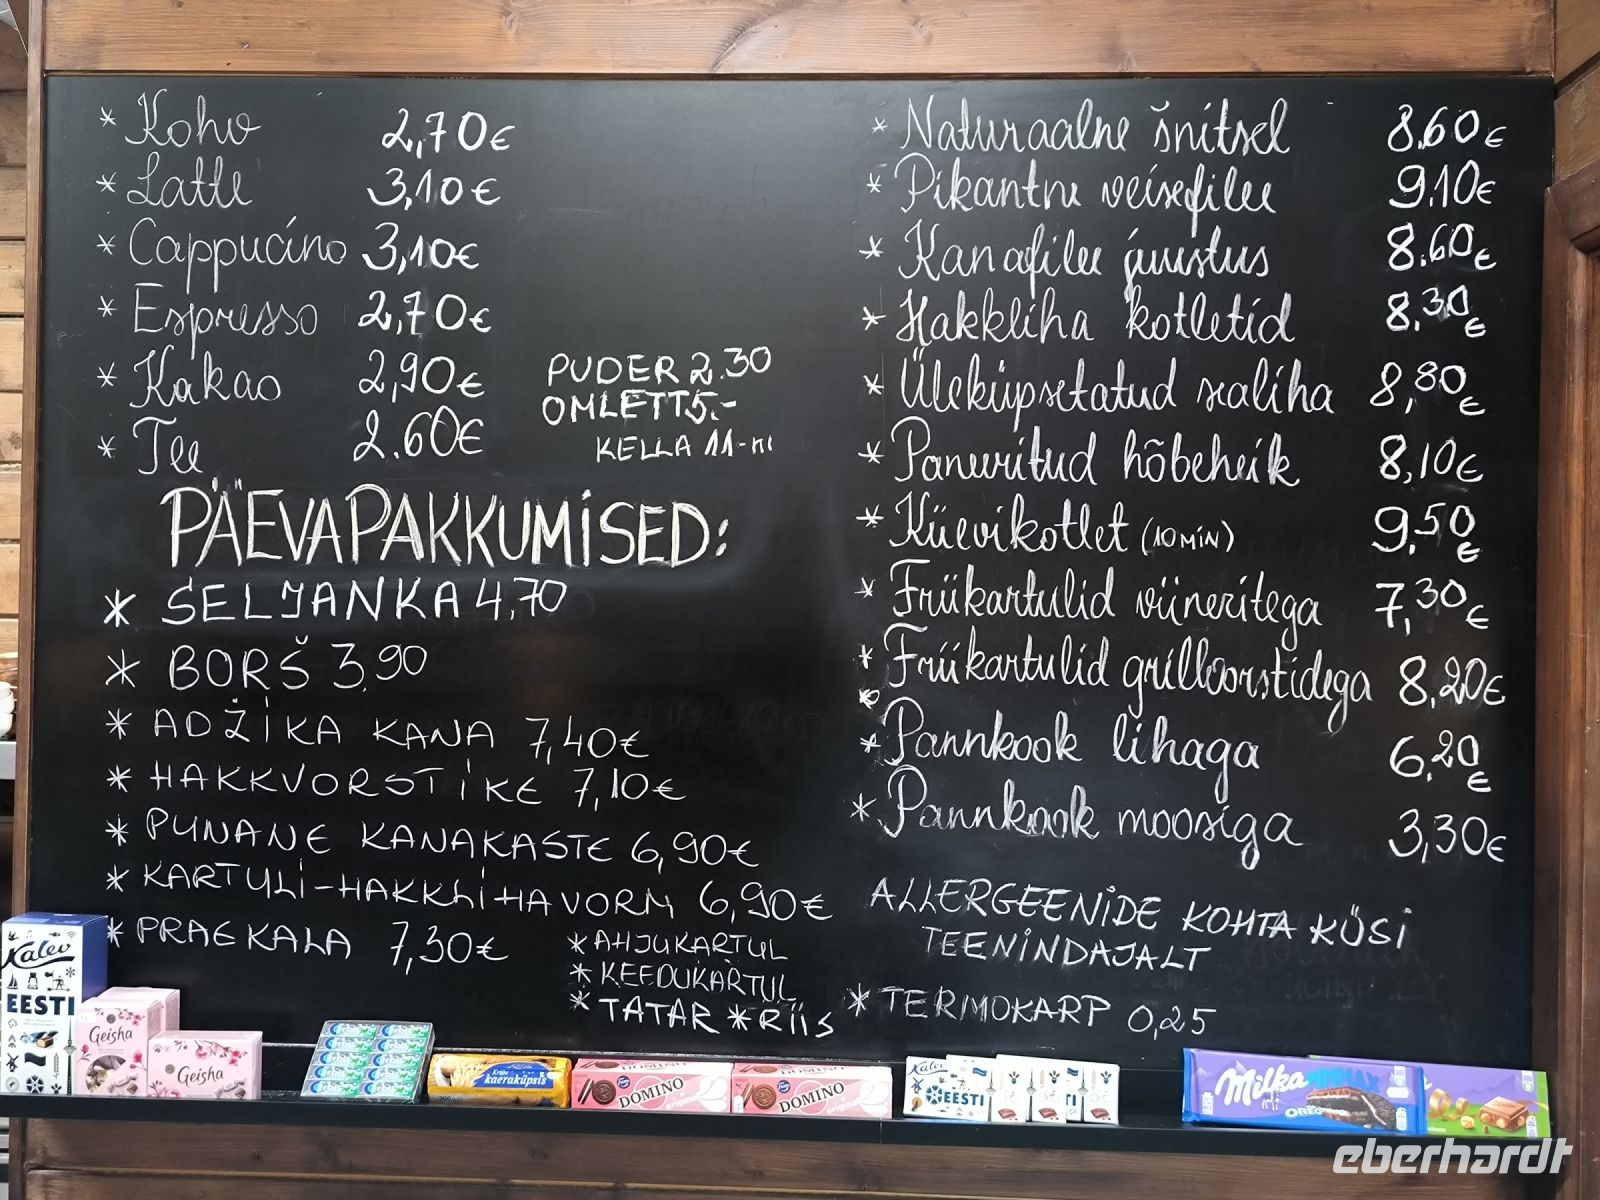 * Kohv 2,70€
* Latte 3,10€
* Cappucino 3,10€
* Espresso 2,70€
* Kakao 2,90€
* Tee 2.60€
PUDER 2.30
OMLETT 5.-
KELLA 11-ni
PÄEVAPAKKUMISED:
* SELJANKA 4,70
* BORŠ 3,90
* ADŽIKA KANA 7,40€
* HAKKVORST IKE 7,10€
* PUNANE KANAKASTE 6,90€
* KARTULI-HAKKLIHAVORM 6,90€
* PRAEKALA 7,30€
* AHJUKARTUL
* KEEDUKARTUL
* TATAR * RIIS
* Naturaalne šnitsel 8.60€
* Pikantne veisefilee 9.10€
* Kanafilee juustus 8.60€
* Hakkliha kotletid 8,30€
* Üleküpsetatud sealiha 8,80€
* Paneeritud hõbeheik 8,10€
* Küevikotlet (10 MIN) 9,50€
* Friikartulid viineritega 7,30€
* Friikartulid grillvorstidega 8,20€
* Pannkook lihaga 6,20€
* Pannkook moosiga 3,30€
ALLERGEENIDE KOHTA KÜSI
TEENINDAJALT
* TERMOKARP 0,25
Kalev
EESTI
Geisha
Geisha
Orbit
Kräbe
kaeraküpsis
DOMINO
Original
DOMINO
Original
Kalev
EESTI
Milka MMMAX
OREO
eberhardt